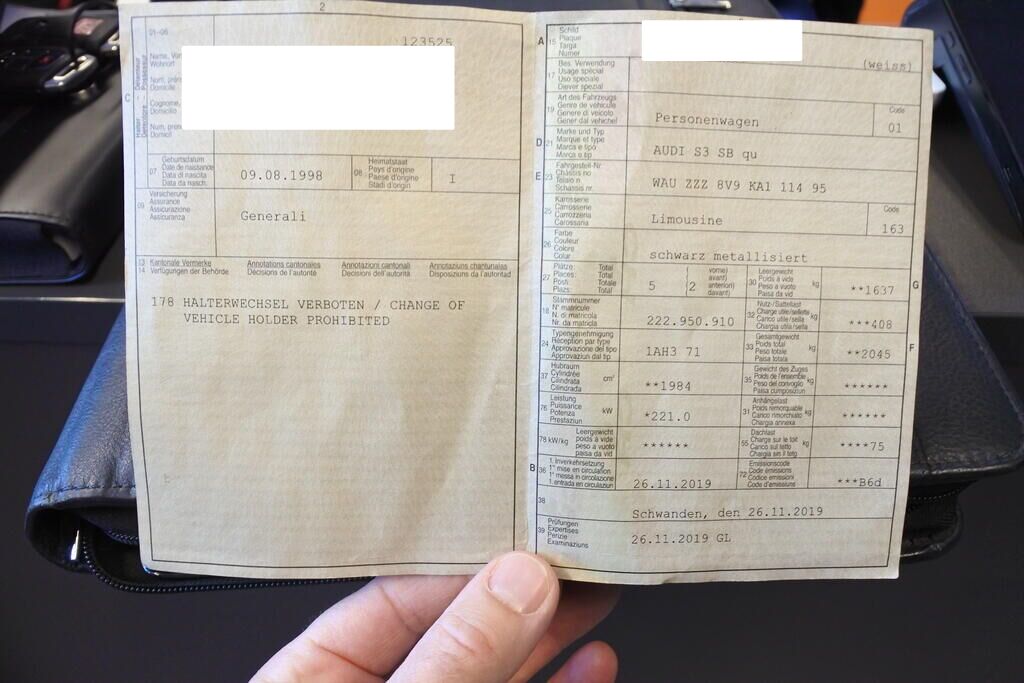 2
01-06
123525
Name, Vor
Wohnort
Nom, prén
Domicile
Cognome,
Domicilio
Num, pren
Domicil
C
Halter
Détenteur
Detentore
Possessur
07
Geburtsdatum
Date de naissance
Data di nascita
Data da nasch.
09.08.1998
08
Heimatstaat
Pays d'origine
Paese d'origine
Stadi d'origin
I
09
Versicherung
Assurance
Assicurazione
Assicuranza
Generali
13
14
Kantonale Vermerke
Verfügungen der Behörde
Annotations cantonales
Décisions de l'autorité
Annotazioni cantonali
Decisioni dell'autorità
Annotaziuns chantunalas
Disposiziuns da l'autoritad
178 HALTERWECHSEL VERBOTEN / CHANGE OF
VEHICLE HOLDER PROHIBITED
A
15
Schild
Plaque
Targa
Numer
(weiss)
17
Bes. Verwendung
Usage spécial
Uso speciale
Diever spezial
19
Art des Fahrzeugs
Genre de véhicule
Genere di veicolo
Gener dal vehichel
Personenwagen
Code
01
D
21
Marke und Typ
Marque et type
Marca e tipo
Marca e tip
AUDI S3 SB qu
E
23
Fahrgestell-Nr.
Châssis no
Telaio n.
Schassis nr.
WAU ZZZ 8V9 KA1 114 95
25
Karosserie
Carrosserie
Carrozzeria
Carossaria
Limousine
Code
163
26
Farbe
Couleur
Colore
Colur
schwarz metallisiert
27
Plätze: Total
Places: Total
Posti: Totale
Plazs: Total
5
(2
vorne)
avant)
anteriori)
davant)
30
Leergewicht
Poids à vide
Peso a vuoto
Paisa da vid
kg
**1637
G
18
Stammnummer
N° matricule
N. di matricola
Nr. da matricla
222.950.910
32
Nutz-/Sattellast
Charge utile/sellette
Carico utile/sella
Chargia utila/sella
kg
***408
24
Typengenehmigung
Réception par type
Approvazione del tipo
Approvaziun dal tip
1AH3 71
33
Gesamtgewicht
Poids total
Peso totale
Paisa totala
kg
**2045
F
37
Hubraum
Cylindrée
Cilindrata
Cilindrada
cm³
**1984
35
Gewicht des Zuges
Poids de l'ensemble
Peso del convoglio
Paisa cumposiziun
kg
******
76
Leistung
Puissance
Potenza
Prestaziun
kW
*221.0
31
Anhängelast
Poids remorquable
Carico rimorchiato
Chargia annexa
kg
******
78
kW/kg
Leergewicht
poids à vide
peso a vuoto
paisa da vid
******
55
Dachlast
Charge sur le toit
Carico sul tetto
Chargia sin il tetg
kg
****75
B
36
1. Inverkehrsetzung
1re mise en circulation
1a messa in circolazione
1. entrada en circulaziun
26.11.2019
72
Emissionscode
Code émissions
Codice emissioni
Code d'emissiuns
***B6d
38
Schwanden, den 26.11.2019
39
Prüfungen
Expertises
Perizie
Examinaziuns
26.11.2019 GL